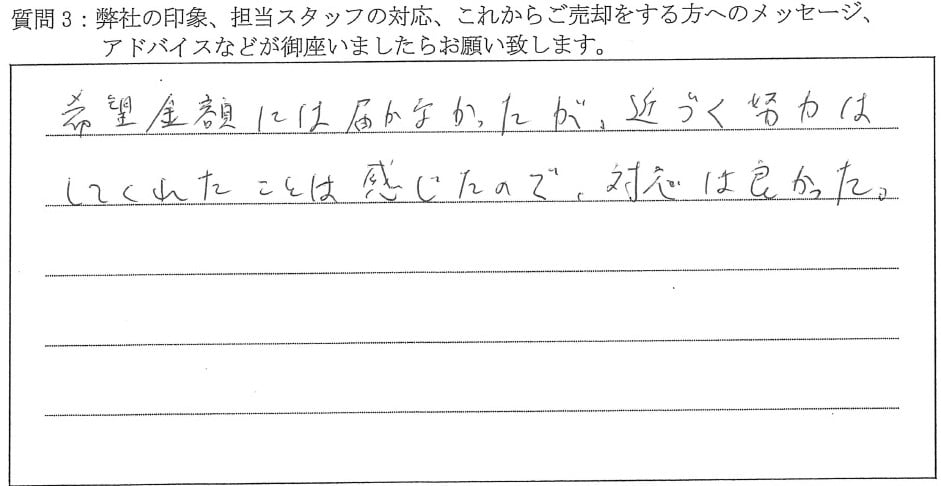 質問3：弊社の印象、担当スタッフの対応、これからご売却をする方へのメッセージ、
アドバイスなどが御座いましたらお願い致します。
希望金額には届かなかったが、近づく努力は
してくれたことは感じたので、対応は良かった。